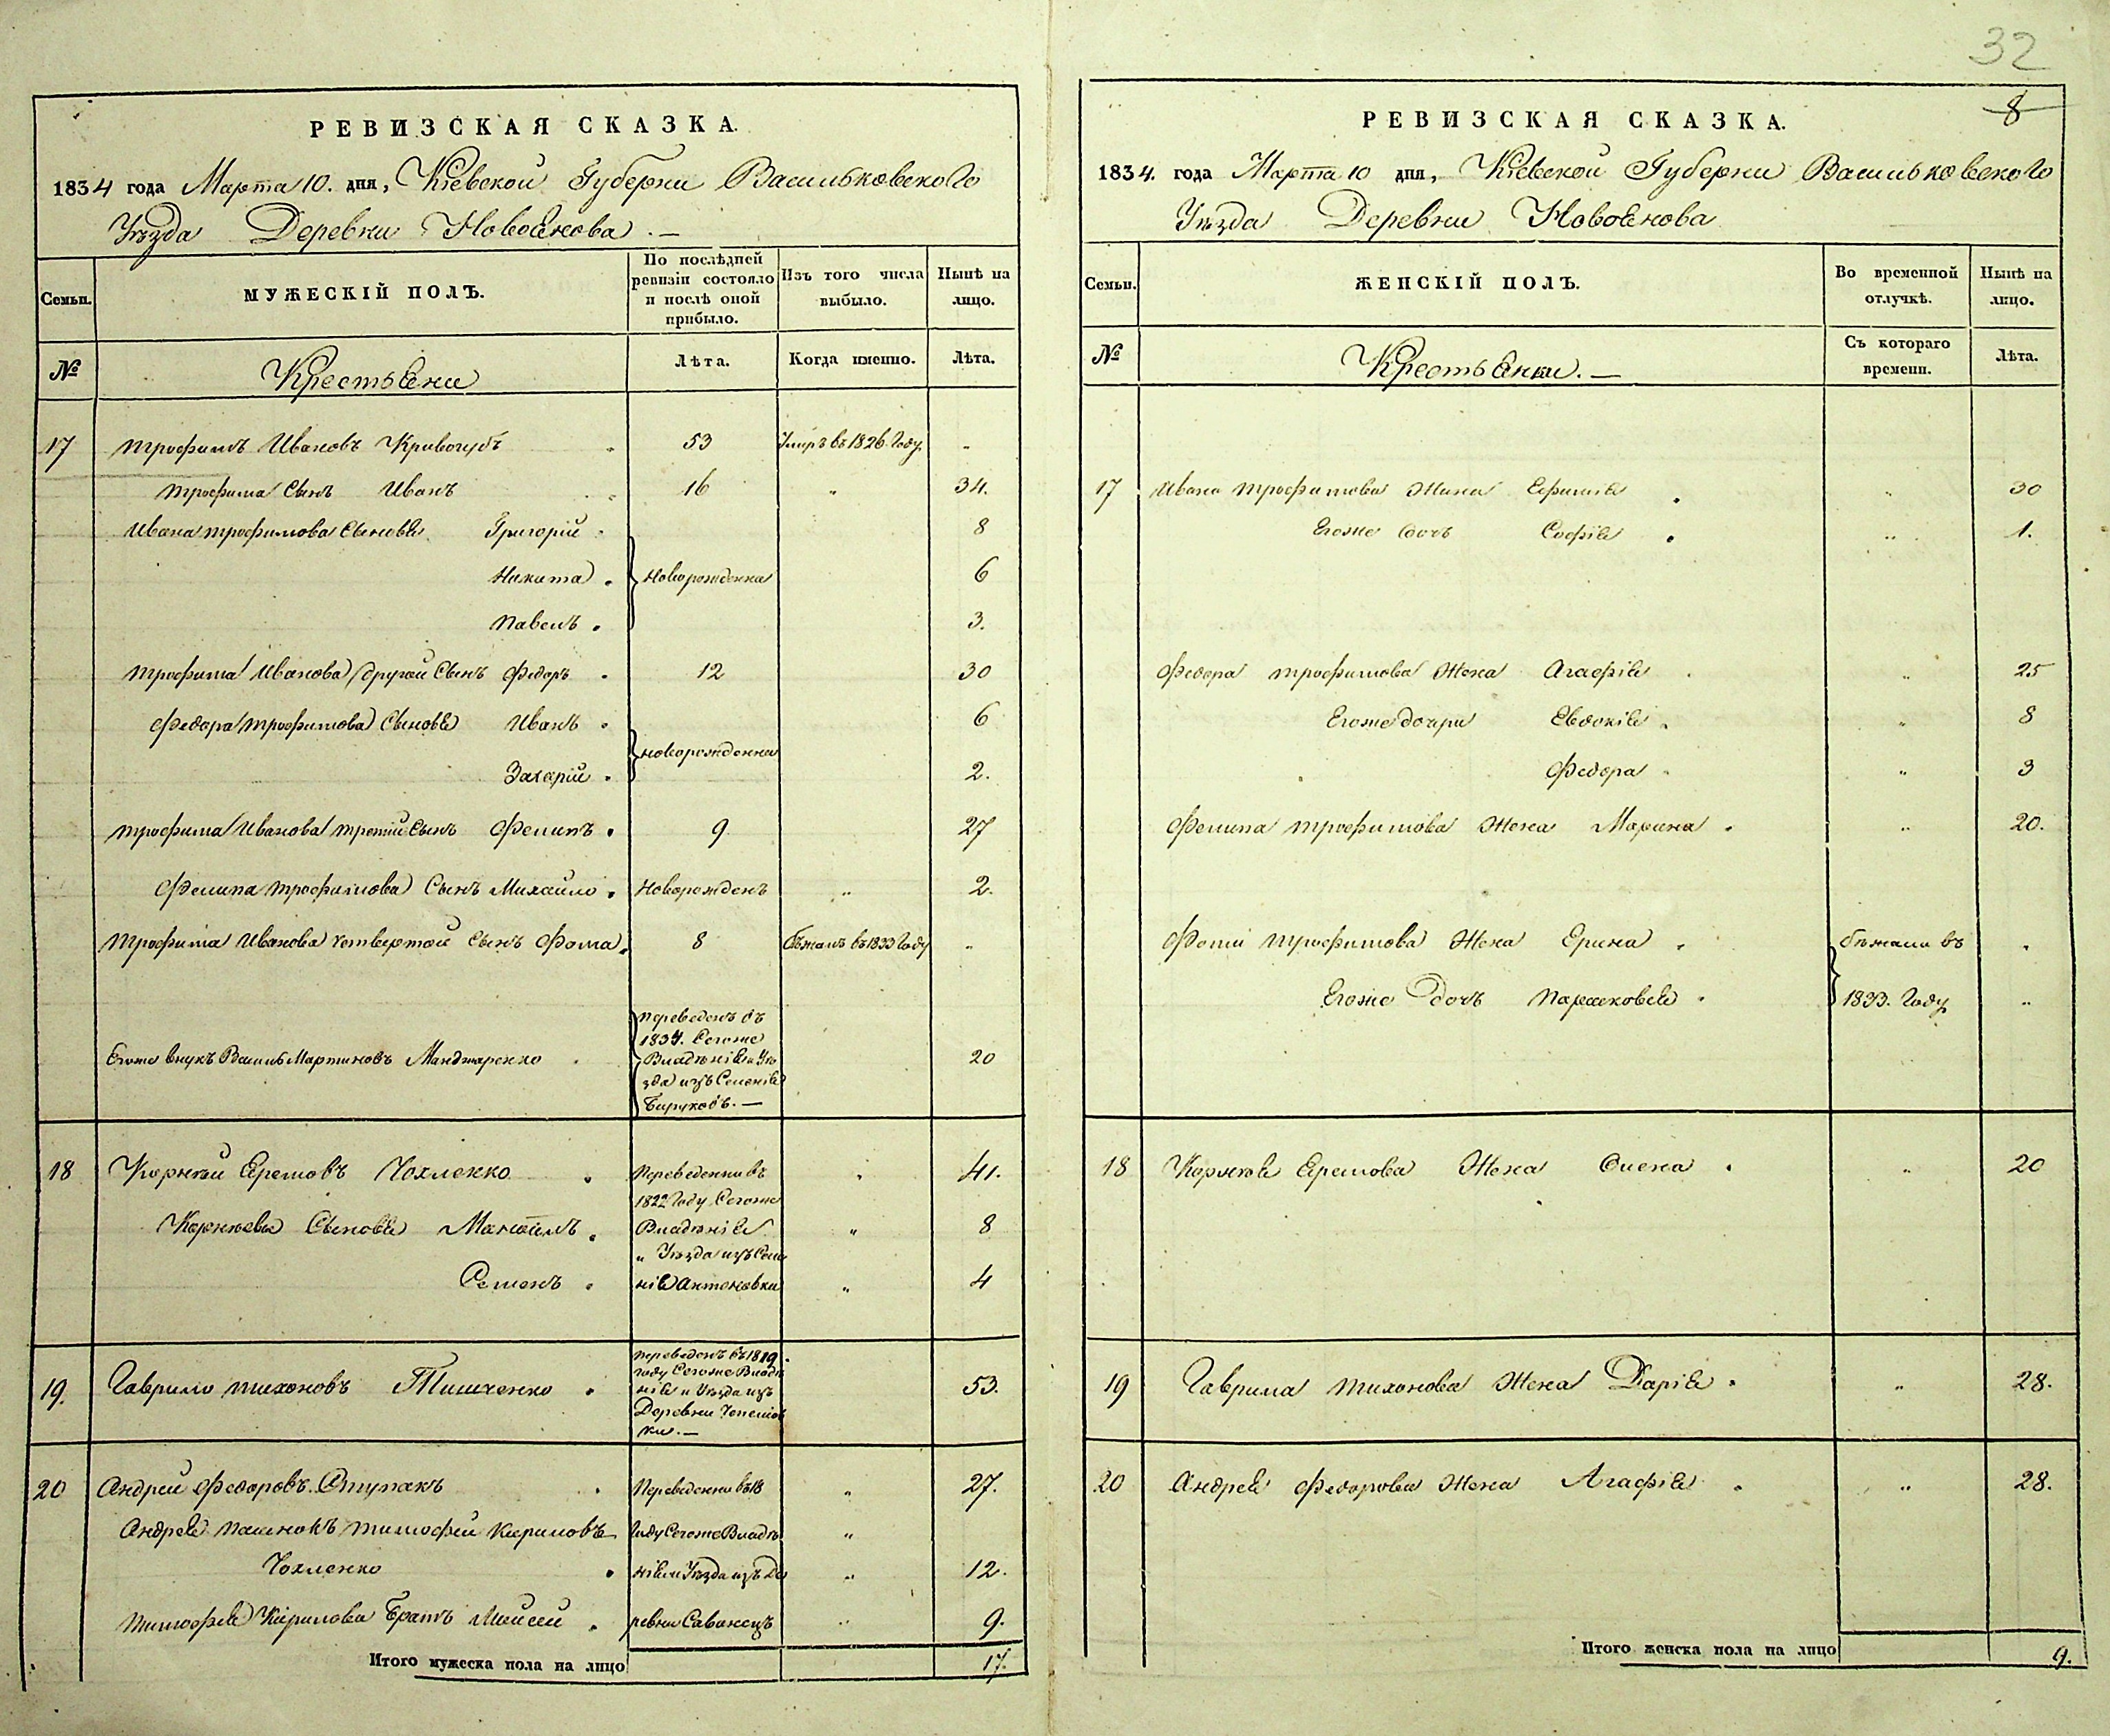 32
РЕВИЗСКАЯ СКАЗКА.
1834 года Марта 10. дня, Кіевской Губерни Васильковского
Уѣзда Деревни Новоселова
Семьи.
МУЖЕСКІЙ ПОЛЪ.
По послѣдней ревизіи состояло и послѣ оной прибыло.
Изъ того числа выбыло.
Нынѣ на лицо.
№
Крестьяни
Лѣта.
Когда именно.
Лѣта.
17 Трофимъ Ивановъ Кривогубъ 53 Умръ въ 1826 Году
Трофима Сынъ Иванъ 16 34.
Ивана Трофимова Сыновья Григорій 8
Никита Новорожденни 6
Павелъ 3.
Трофима Иванова другой Сынъ Федоръ 12 30
Федора Трофимова Сыновья Иванъ 6
новорожденни
Захарій 2.
Трофима Иванова третій Сынъ Фелипъ 9 27
Фелипа Трофимова Сынъ Михайло Новорожденъ 2.
Трофима Иванова четвертой Сынъ Фома 8 бѣжалъ въ 1833 Году
Егоже внукъ Василь Мартиновъ Манджаренко 20
переведенъ въ
1834. Сегоже
Владѣнія и Уѣ
зда изъ Селенія
Бируковъ.
18 Корнѣй Яремовъ Чохленко Переведенни въ 41.
1822 Году Сегоже
Корнѣева Сыновья Манойлъ Владѣнія 8
Уѣзда изъ Селе
Семенъ нія Антоновки 4
19. Гаврило Тихоновъ Тищенко 53.
переведенъ въ 1819
году Сегоже Владѣ
нія и Уѣзда изъ
Деревни
ки.
20 Андрей Федоровъ Ступакъ Переведенни въ 18 27.
Андрея Тимофей Кириловъ Году Сегоже Владѣ
Чохленко нія и Уѣзда изъ Де 12.
Тимофея Кирилова Братъ Моисей ревни Саванецъ 9.
Итого мужеска пола на лицо 17.
8
РЕВИЗСКАЯ СКАЗКА.
1834. года Марта 10 дня, Кіевской Губерни Васильковского
Уѣзда Деревни Новоселова
Семьи.
ЖЕНСКІЙ ПОЛЪ.
Во временной отлучкѣ.
Нынѣ на лицо.
№
Крестьянки.
Съ котораго времени.
Лѣта.
17 Ивана Трофимова Жена Ефимія 30
Егоже дочь Софія 1.
Федора Трофимова Жена Агафія 25
Егоже дочери Евдокія 8
Федора 3
Фелипа Трофимова Жена Марина 20.
Фоми Трофимова Жена Ерина бѣжали въ
Егоже дочь Парасковея 1833. Году
18 Корнѣя Яремова Жена Олена 20
19 Гаврила Тихонова Жена Дарія 28.
20 Андрея Федорова Жена Агафія 28.
Итого женска пола на лицо 9.